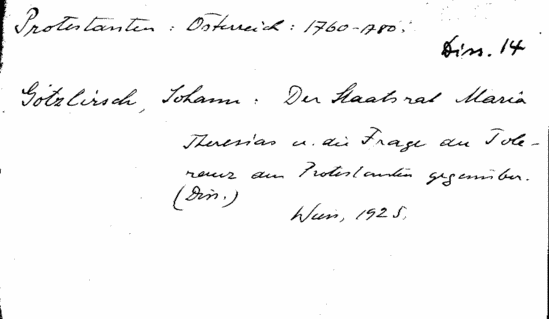 Protestanten : Österreich : 1760-1780;
Diss. 14
Götzlirsch, Johann : Der Staatsrat Maria
Theresias u. die Frage der Tole-
ranz den Protestanten gegenüber.
(Diss.)
Wien, 1925.